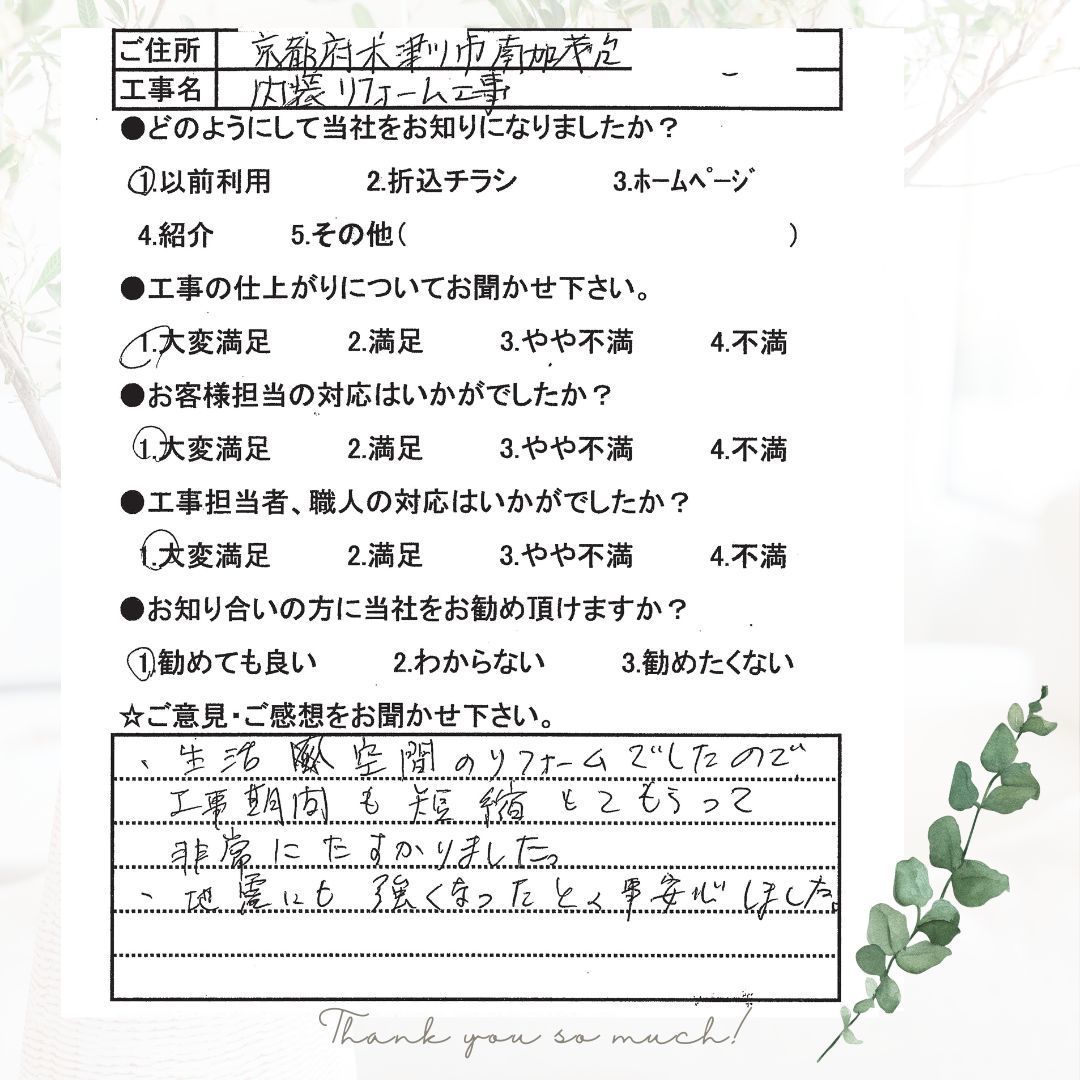 ご住所 京都府木津川市南加茂台
工事名 内装リフォーム工事
●どのようにして当社をお知りになりましたか？
1.以前利用 2.折込チラシ 3.ﾎｰﾑﾍﾟｰｼﾞ
4.紹介 5.その他( )
●工事の仕上がりについてお聞かせ下さい。
1.大変満足 2.満足 3.やや不満 4.不満
●お客様担当の対応はいかがでしたか？
1.大変満足 2.満足 3.やや不満 4.不満
●工事担当者、職人の対応はいかがでしたか？
1.大変満足 2.満足 3.やや不満 4.不満
●お知り合いの方に当社をお勧め頂けますか？
1.勧めても良い 2.わからない 3.勧めたくない
☆ご意見・ご感想をお聞かせ下さい。
、生活 空間のリフォームでしたので、
工事期間も短縮してもらって
非常にたすかりました。
、地震にも強くなったとの事安心しました。
Thank you so much!